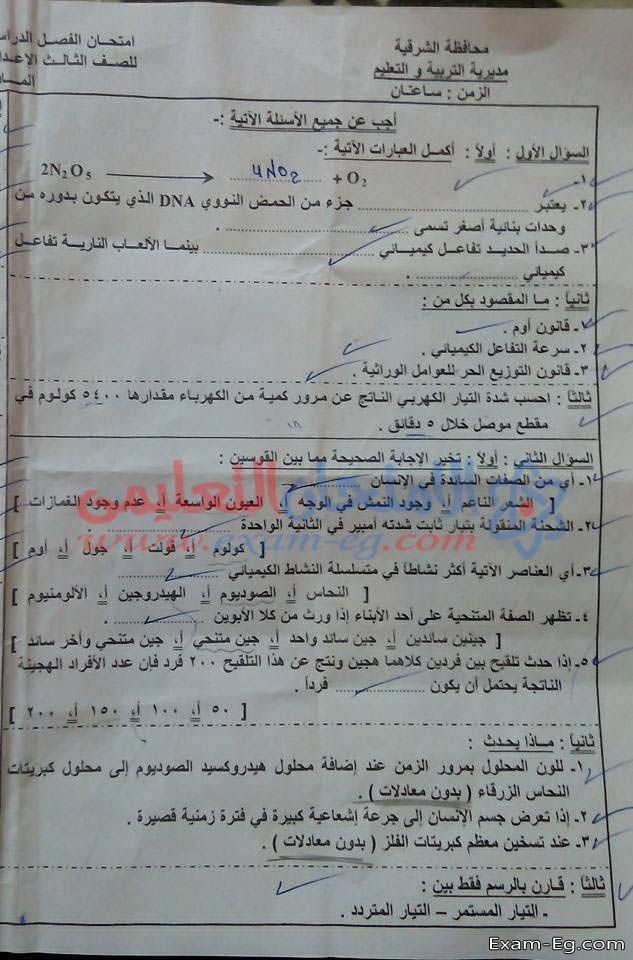 محافظة الشرقية
مديرية التربية و التعليم
الزمن : ساعتان
امتحان الفصل الدراس
للصف الثالث الإعدا
الما
أجب عن جميع الأسئلة الآتية :-
السؤال الأول : أولاً : أكمل العبارات الآتية :-
١- 2N2O5 ⟶ 4NO2 + O2
٢- يعتبر .................. جزء من الحمض النووي DNA الذي يتكون بدوره من
وحدات بنائية أصغر تسمى .................. .
٣- صدأ الحديد تفاعل كيميائي .................. بينما الألعاب النارية تفاعل
كيميائي .................. .
ثانياً : ما المقصود بكل من :
١- قانون أوم .
٢- سرعة التفاعل الكيميائي .
٣- قانون التوزيع الحر للعوامل الوراثية .
ثالثاً : احسب شدة التيار الكهربي الناتج عن مرور كمية من الكهرباء مقدارها ٥٤٠٠ كولوم في
مقطع موصل خلال ٥ دقائق .
١٨
السؤال الثاني : أولاً : تخير الإجابة الصحيحة مما بين القوسين :
١- أي من الصفات السائدة في الإنسان ..................
[ الشعر الناعم أ، وجود النمش في الوجه أ، العيون الواسعة أ، عدم وجود الغمازات ]
٢- الشحنة المنقولة بتيار ثابت شدته أمبير في الثانية الواحدة ..................
www.exam-eg.com
[ كولوم أ، فولت أ، جول أ، أوم ]
٣- أي العناصر الآتية أكثر نشاطاً في متسلسلة النشاط الكيميائي ..................
[ النحاس أ، الصوديوم أ، الهيدروجين أ، الألومنيوم ]
٤- تظهر الصفة المتنحية على أحد الأبناء إذا ورث من كلا الأبوين .................. .
[ جينين سائدين أ، جين سائد واحد أ، جين متنحي أ، جين متنحي وأخر سائد ]
٥- إذا حدث تلقيح بين فردين كلاهما هجين ونتج عن هذا التلقيح ٢٠٠ فرد فإن عدد الأفراد الهجينة
الناتجة يحتمل أن يكون .................. فرداً .
[ ٥٠ أ، ١٠٠ أ، ١٥٠ أ، ٢٠٠ ]
ثانياً : ماذا يحدث :
١- للون المحلول بمرور الزمن عند إضافة محلول هيدروكسيد الصوديوم إلى محلول كبريتات
النحاس الزرقاء ( بدون معادلات ) .
٢- إذا تعرض جسم الإنسان إلى جرعة إشعاعية كبيرة في فترة زمنية قصيرة .
٣- عند تسخين معظم كبريتات الفلز ( بدون معادلات ) .
ثالثاً : قارن بالرسم فقط بين :
- التيار المستمر – التيار المتردد .
Exam-Eg.com